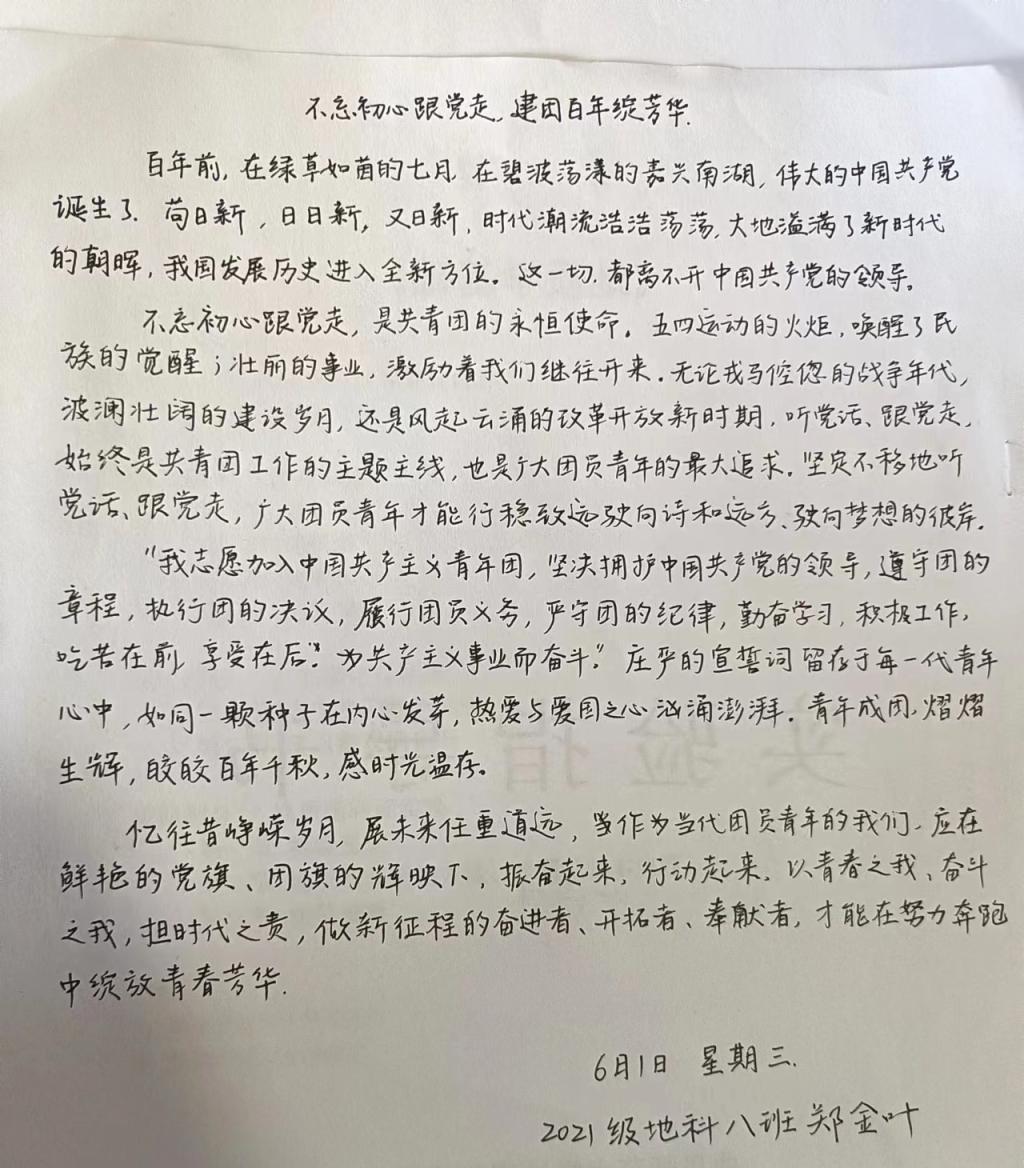 不忘初心跟党走,建团百年绽芳华.
百年前,在绿草如茵的七月.在碧波荡漾的嘉兴南湖,伟大的中国共产党
诞生了.苟日新,日日新,又日新,时代潮流浩浩荡荡,大地溢满了新时代
的朝晖,我国发展历史进入全新方位。这一切.都离不开中国共产党的领导。
不忘初心跟党走,是共青团的永恒使命.五四运动的火炬,唤醒了民
族的觉醒;壮丽的事业,激励着我们继往开来.无论戎马倥偬的战争年代,
波澜壮阔的建设岁月,还是风起云涌的改革开放新时期,听党话、跟党走,
始终是共青团工作的主题主线,也是广大团员青年的最大追求.坚定不移地听
党话、跟党走,广大团员青年才能行稳致远驶向诗和远方、驶向梦想的彼岸.
"我志愿加入中国共产主义青年团,坚决拥护中国共产党的领导,遵守团的
章程,执行团的决议,履行团员义务,严守团的纪律,勤奋学习,积极工作,
吃苦在前,享受在后".为共产主义事业而奋斗."庄严的宣誓词留存于每一代青年
心中,如同一颗种子在内心发芽,热爱与爱国之心汹涌澎湃.青年成团,熠熠
生辉,皎皎百年千秋,感时光温存。
忆往昔峥嵘岁月,展未来任重道远,当作为当代团员青年的我们,应在
鲜艳的党旗、团旗的辉映下,振奋起来,行动起来,以青春之我、奋斗
之我,担时代之责,做新征程的奋进者、开拓者、奉献者,才能在努力奔跑
中绽放青春芳华.
6月1日 星期三.
2021级地科八班郑金叶